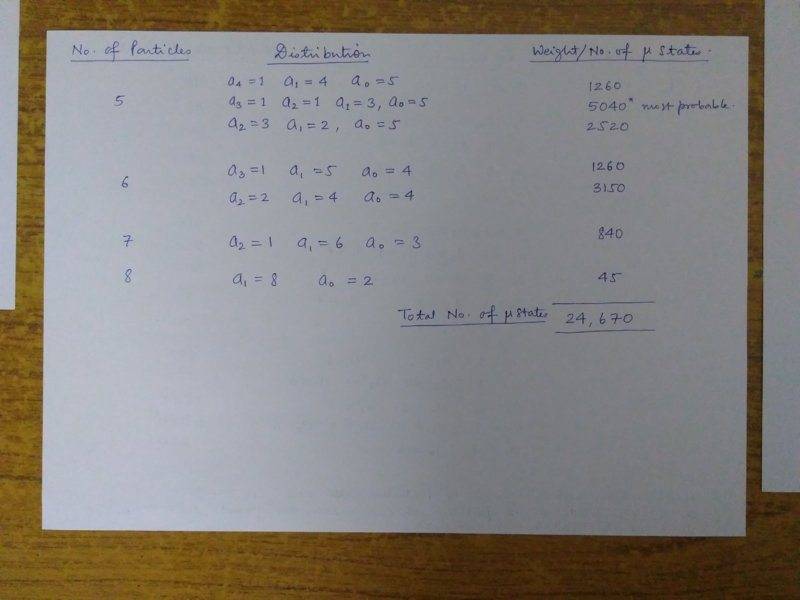 No. of Particles Distribution Weight/No. of μ States.
a₄ = 1 a₁ = 4 a₀ = 5 1260
5 a₃ = 1 a₂ = 1 a₁ = 3, a₀ = 5 5040* most probable.
a₂ = 3 a₁ = 2, a₀ = 5 2520
a₃ = 1 a₁ = 5 a₀ = 4 1260
6
a₂ = 2 a₁ = 4 a₀ = 4 3150
7 a₂ = 1 a₁ = 6 a₀ = 3 840
8 a₁ = 8 a₀ = 2 45
Total No. of μ States 24,670